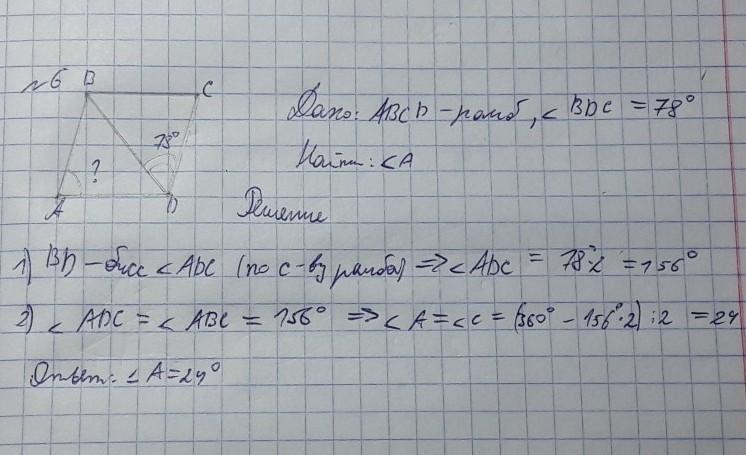 №6 B C
Дано: ABCD - ромб, ∠BDC = 78°
78°
Найти: ∠A
?
A D
Решение
1) BD - бисс ∠ADC (по св-ву ромба) ⇒ ∠ADC = 78°·2 = 156°
2) ∠ADC = ∠ABC = 156° ⇒ ∠A = ∠C = (360° - 156°·2) : 2 = 24
Ответ: ∠A = 24°